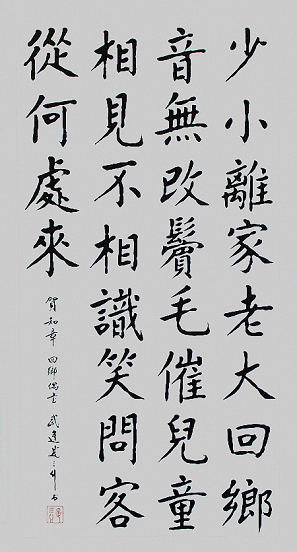 少小離家老大回鄉
音無改鬢毛催兒童
相見不相識笑問客
從何處來
賀知章 回鄉偶書